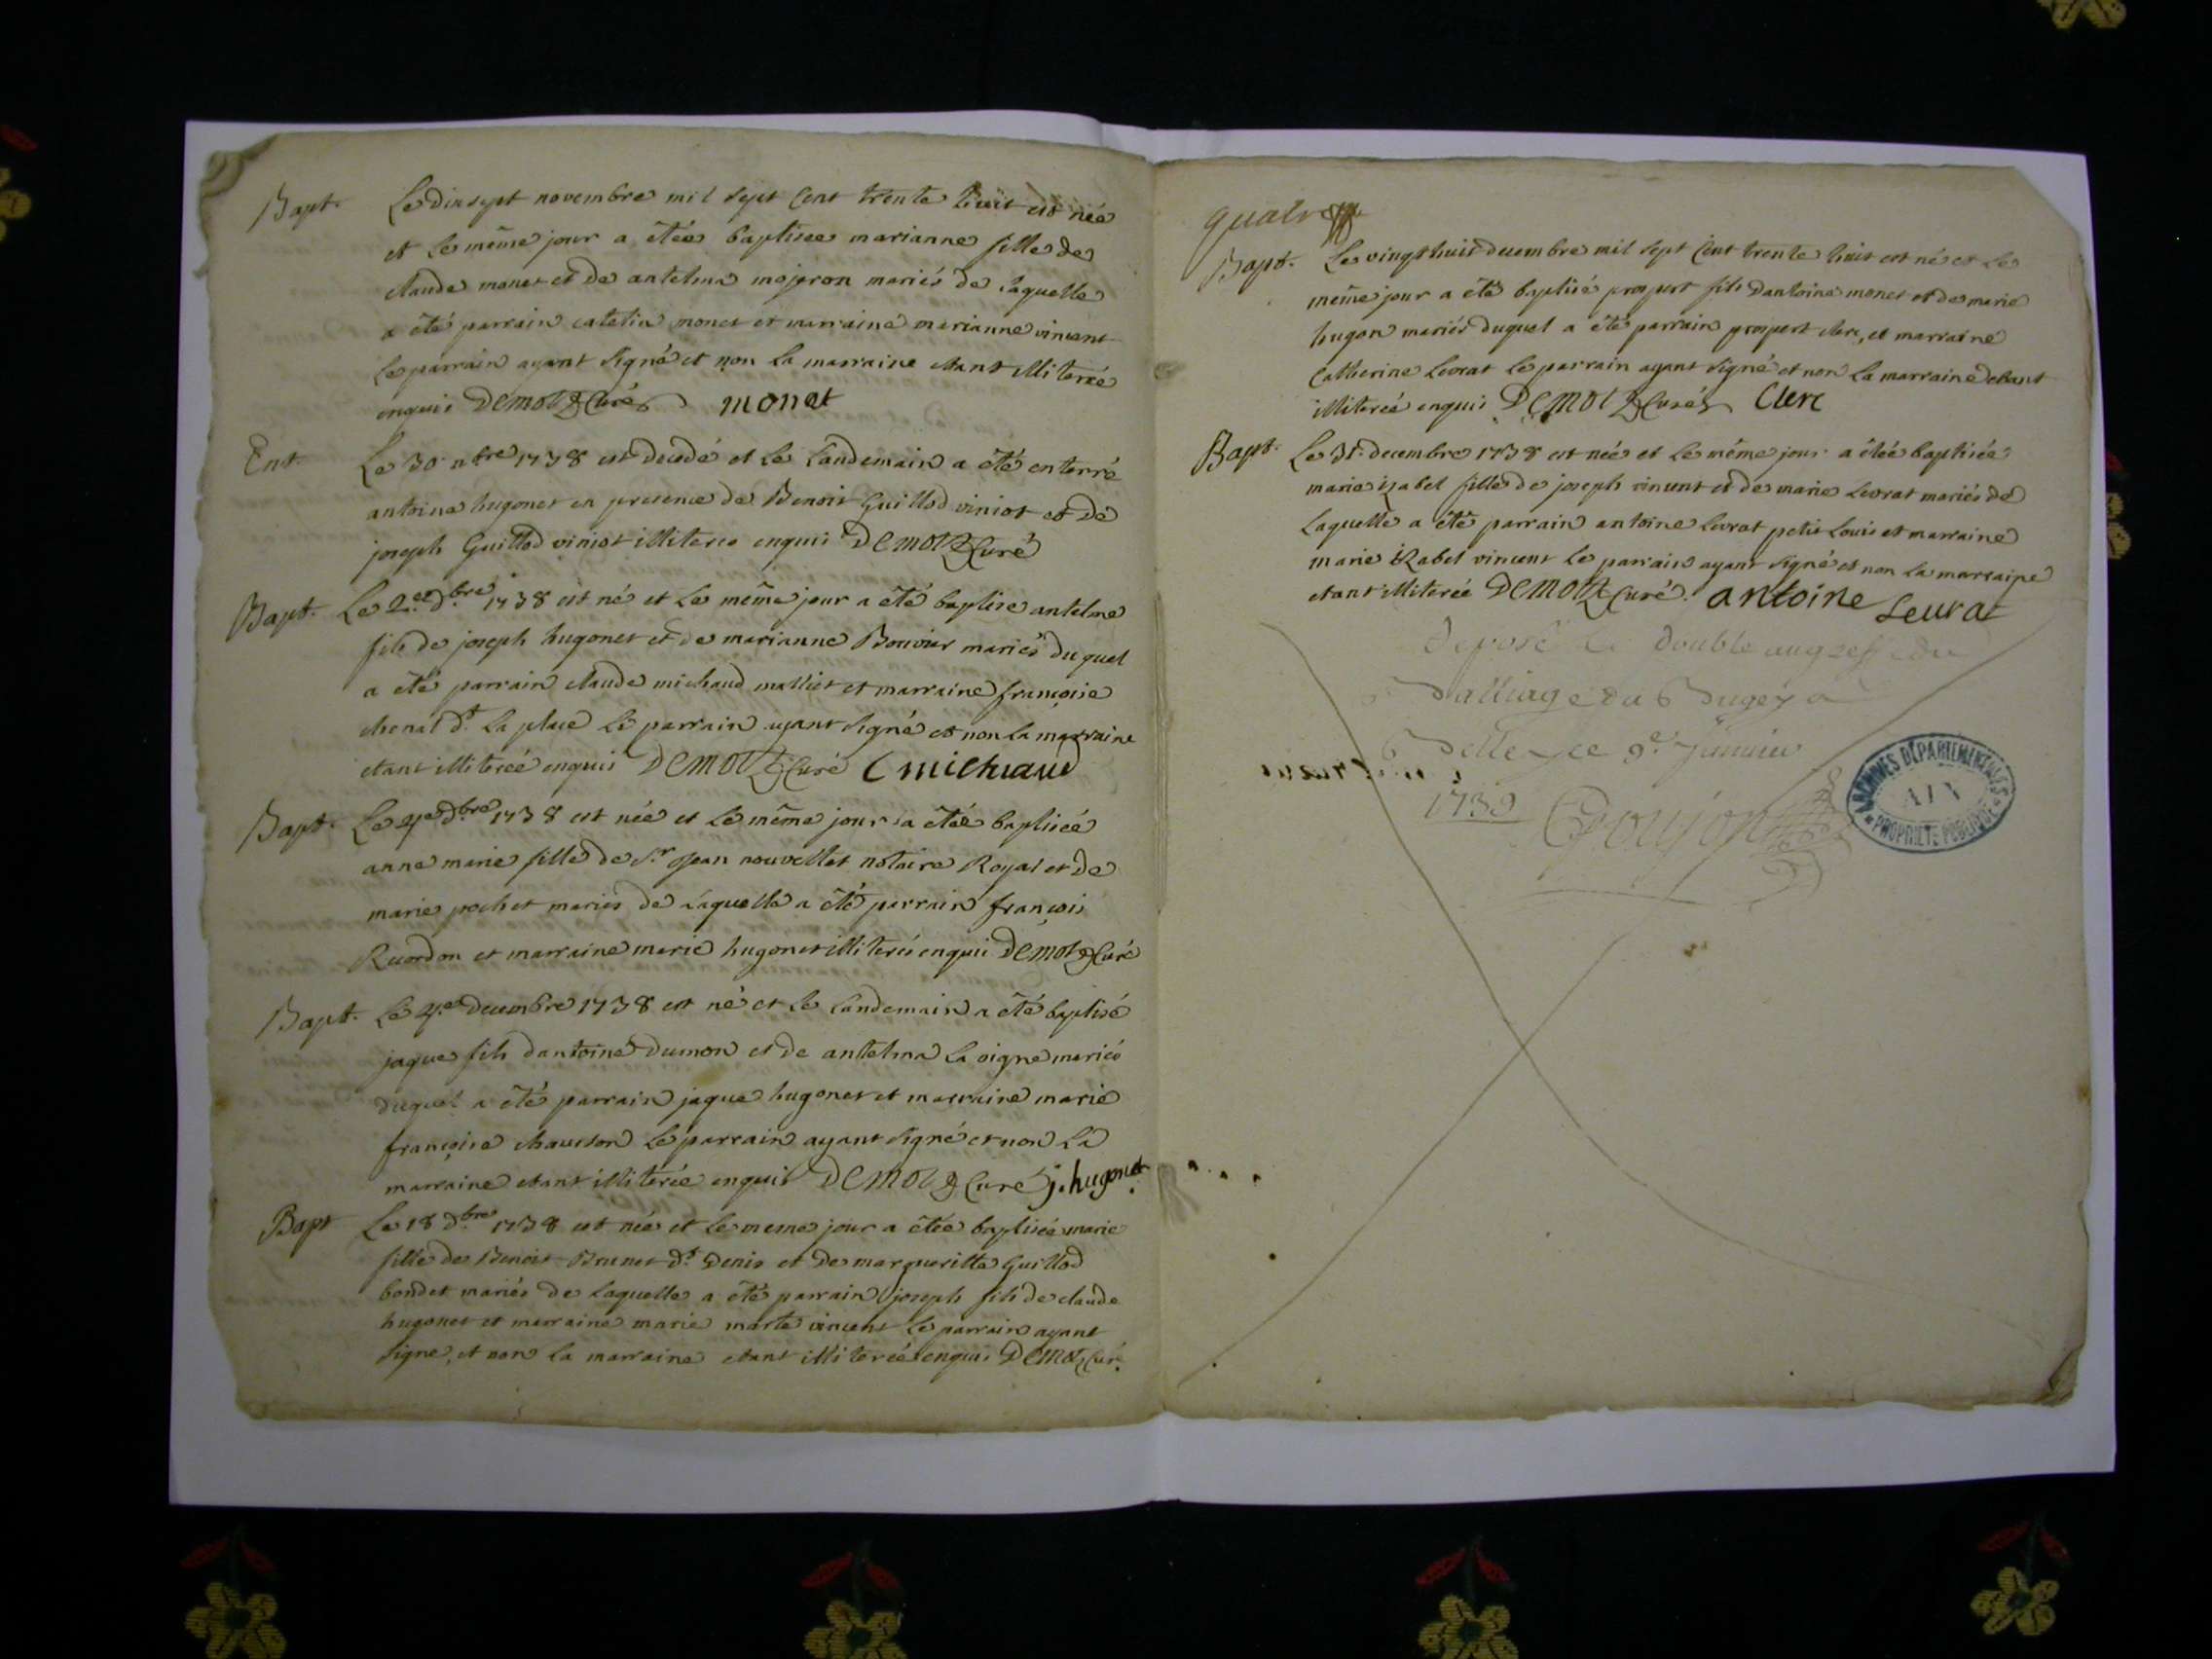 Bapt. Le dixsept novembre mil sept Cent trente huit est née
et le même jour a êtée baptisee marianne fille de
claude monet et de antelma mojeron mariés de laquelle
a êté parrain catelin monet et marraine marianne vincent
le parrain ayant signé et non la marraine etant illiterée
enquis Demotz Curé monet
Ent. Le 30 nbre 1738 est decedé et le landemain a été enterré
antoine hugonet en presence de Benoit Guillod viniot et de
joseph Guillod viniot illiteres enquis Demotz Curé
Bapt. Le 2e dbre 1738 est né et le même jour a êté baptise antelme
fils de joseph hugonet et de marianne Bonvier mariés duquel
a été parrain claude michaud malliet et marraine françoise
chenal dt la place le parrain ayant signé et non la marraine
etant illiterée enquis Demotz Curé C michaud
Bapt. Le 4e dbre 1738 est née et le même jour a êtée baptisée
anne marie fille de Sr jean nouvellet notaire Royal et de
marie pochet mariés de laquelle a êté parrain françois
Reordon et marraine marie hugonet illiterés enquis Demotz Curé
Bapt. Le 4e decembre 1738 est né et le landemain a êté baptisé
jaque fils dantoine dumon et de antelma la oigne mariés
duquel a êté parrain jaque hugonet et marraine marie
françoise chauison le parrain ayant signé et non la
marraine etant illiterée enquis Demotz Curé j. hugonet
Bapt Le 18 dbre 1738 est née et le meme jour a êtée baptisée marie
fille de Benoit Brunet dt Denis et de margueritte Guillod
bondet mariés de laquelle a êté parrain joseph fils de claude
hugonet et marraine marie marte vincent le parrain ayant
signe, et non la marraine etant illiterée enquis Demotz Cur.
quatre
Bapt. Le vingt huit decembre mil sept Cent trente huit est né et le
même jour a êté baptisé prospert fils dantoine monet et de marie
hugon mariés duquel a êté parrain prospert clerc, et marraine
Catherine levrat le parrain ayant signé et non la marraine etant
illiterée enquis Demotz Curé Clerc
Bapt. Le 31. decembre 1738 est née et le même jour a êtée baptisée
marie izabel fille de joseph vincent et de marie levrat mariés de
laquelle a êté parrain antoine levrat petit Louis et marraine
marie izabel vincent le parrain ayant signé et non la marraine
etant illiterée Demotz Curé. antoine Leurat
deposé le double au greffe du
Balliage du Bugey a
Belley ce 9e Janvier
1739 Goujon
ARCHIVES DÉPARTEMENTALES
AIN
PROPRIÉTÉ PUBLIQUE